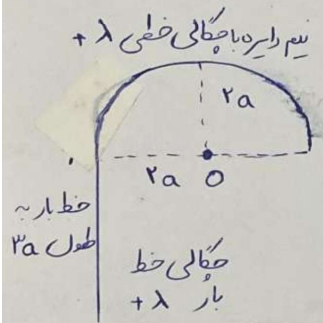 نیم دایره با چگالی خطی λ+
۲a
۲a O
خط بار به
طول ۳a
چگالی خط
بار λ+